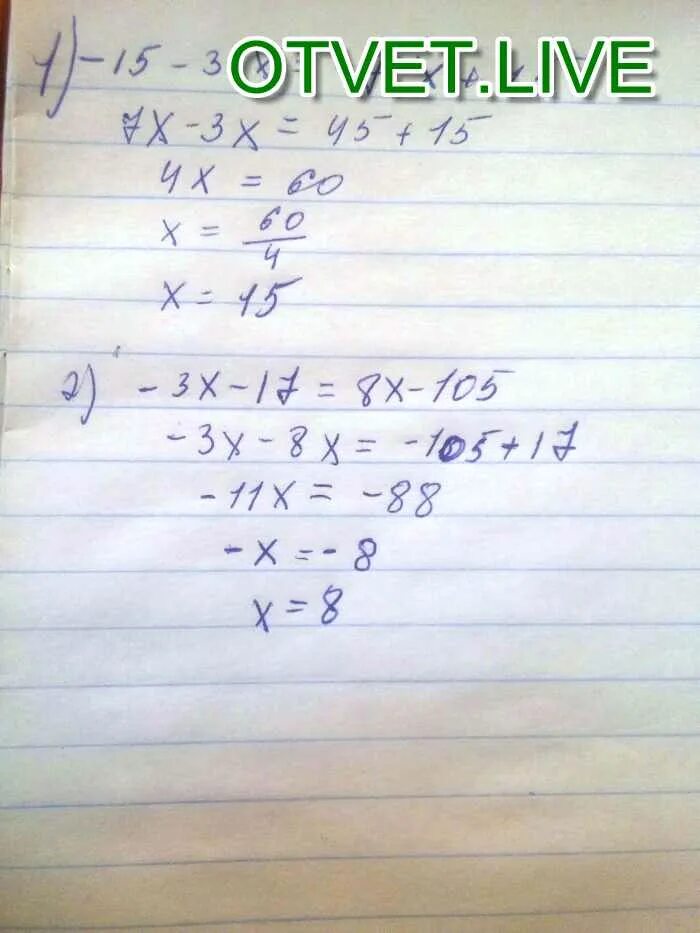 1) -15 - 3 OTVET.LIVE
7x - 3x = 45 + 15
4x = 60
x = 60/4
x = 15
2) -3x - 17 = 8x - 105
-3x - 8x = -105 + 17
-11x = -88
-x = -8
x = 8